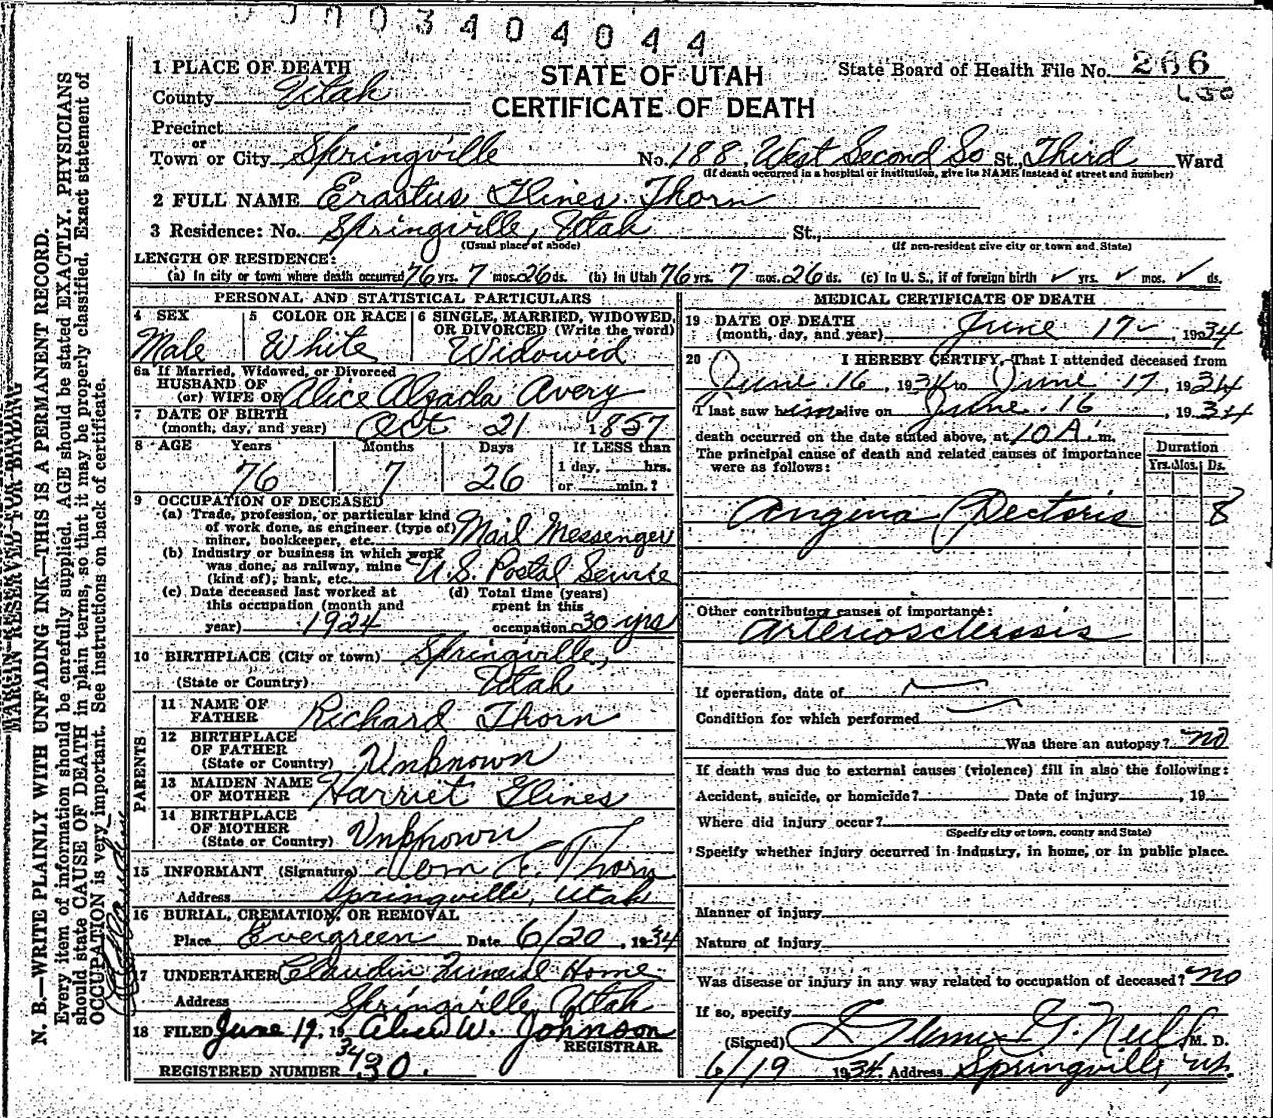 0003404044
1 PLACE OF DEATH
STATE OF UTAH
CERTIFICATE OF DEATH
State Board of Health File No. 266
County Utah
Precinct
or
Town or City Springville No. 188 West Second So St., Third Ward
(If death occurred in a hospital or institution, give its NAME instead of street and number)
2 FULL NAME Erastus Glines Thorn
3 Residence: No. Springville, Utah St.,
(Usual place of abode) (If non-resident give city or town and State)
LENGTH OF RESIDENCE:
(a) In city or town where death occurred 76 yrs. 7 mos. 26 ds. (b) In Utah 76 yrs. 7 mos. 26 ds. (c) In U. S., if of foreign birth ✓ yrs. ✓ mos. ✓ ds.
PERSONAL AND STATISTICAL PARTICULARS
4 SEX 5 COLOR OR RACE 6 SINGLE, MARRIED, WIDOWED, OR DIVORCED (Write the word)
Male White Widowed
6a If Married, Widowed, or Divorced
HUSBAND OF
(or) WIFE OF Alice Alzada Avery
7 DATE OF BIRTH
(month, day, and year) Oct 21 1857
8 AGE Years Months Days If LESS than
76 7 26 1 day, hrs.
or min.?
9 OCCUPATION OF DECEASED
(a) Trade, profession, or particular kind
of work done, as engineer (type of)
miner, bookkeeper, etc. Mail Messenger
(b) Industry or business in which work
was done, as railway, mine
(kind of); bank, etc. U.S. Postal Service
(c) Date deceased last worked at
this occupation (month and
year) 1924
(d) Total time (years)
spent in this
occupation 30 yrs
10 BIRTHPLACE (City or town) Springville,
(State or Country) Utah
PARENTS
11 NAME OF
FATHER Richard Thorn
12 BIRTHPLACE
OF FATHER
(State or Country) Unknown
13 MAIDEN NAME
OF MOTHER Harriet Glines
14 BIRTHPLACE
OF MOTHER
(State or Country) Unknown
15 INFORMANT (Signature) Thorn
Address Springville, Utah
16 BURIAL, CREMATION, OR REMOVAL
Place Evergreen Date 6/20, 1934
17 UNDERTAKER Claudin Funeral Home
Address Springville Utah
18 FILED June 19, 1934 Alice W. Johnson
REGISTRAR.
REGISTERED NUMBER 30.
MEDICAL CERTIFICATE OF DEATH
19 DATE OF DEATH
(month, day, and year) June 17, 1934
20 I HEREBY CERTIFY, That I attended deceased from
June 16, 1934 to June 17, 1934
I last saw him alive on June 16, 1934
death occurred on the date stated above, at 10 A. m.
The principal cause of death and related causes of importance
were as follows:
Duration
Yrs. Mos. Ds.
Angina Pectoris 8
Other contributory causes of importance:
Arteriosclerosis
If operation, date of
Condition for which performed
Was there an autopsy? no
If death was due to external causes (violence) fill in also the following:
Accident, suicide, or homicide? Date of injury , 19
Where did injury occur?
(Specify city or town, county and State)
Specify whether injury occurred in industry, in home, or in public place.
Manner of injury
Nature of injury
Was disease or injury in any way related to occupation of deceased? no
If so, specify
(Signed) M. D.
6/19 1934 Address Springville, Ut.
MARGIN RESERVED FOR BINDING
N. B.—WRITE PLAINLY WITH UNFADING INK—THIS IS A PERMANENT RECORD.
Every item of information should be carefully supplied. AGE should be stated EXACTLY. PHYSICIANS
should state CAUSE OF DEATH in plain terms, so that it may be properly classified. Exact statement of
OCCUPATION is very important. See instructions on back of certificate.